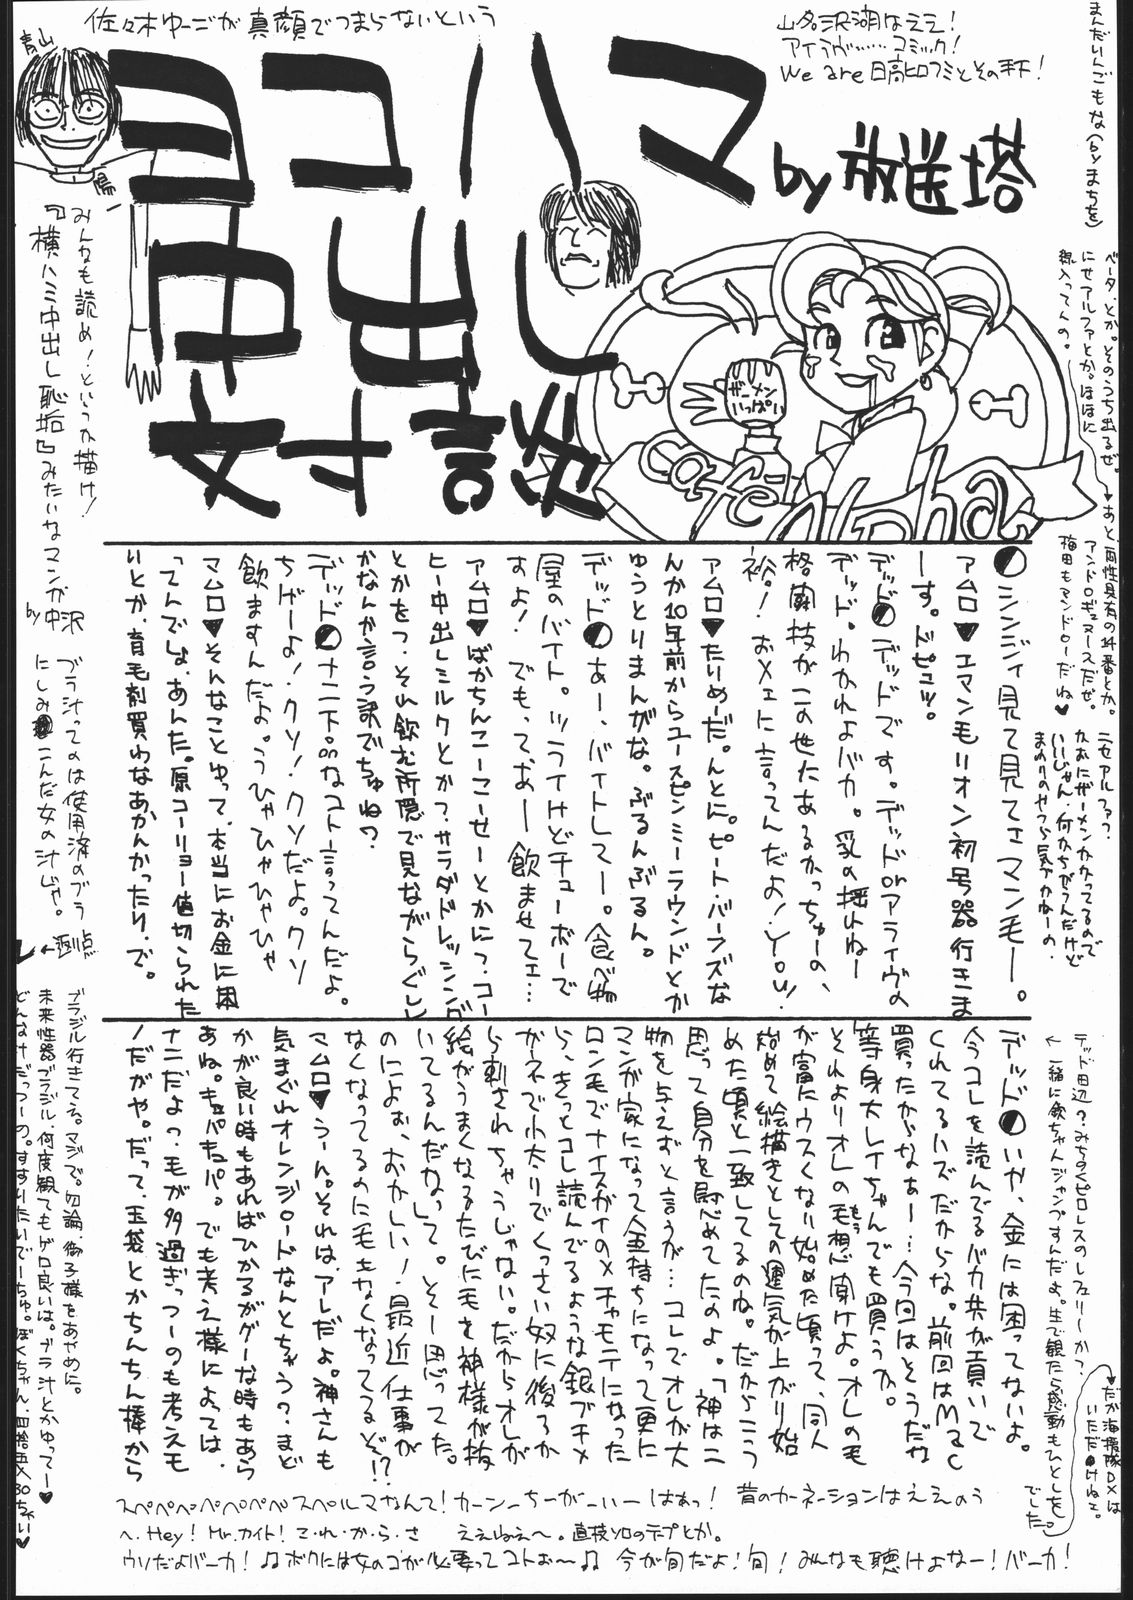 佐々木ゆーごが真顔でつまらないという
ヨコハマ
中出し
対談
by 放送塔
山名沢湖はええ!
アイラヴ……コミック!
We are 日高ヒロフミとその手下!
青山
陽一
まんだいんごもな(byまちを)
ベータ、とか。そのうち出るぜ。
にせアルファとか。ほほに
線入ってんの。
あと両性具有の14番とか。
アンドロギュヌースだぜ。
梅田もアンドローだね♥
ニセアルファ?
かおにザーメンかかってるので
いいじゃん。何かちがうんだけど
まわりのやつら気づかねーの。
ザーメン
いっぱい
cafe Alpha
みんなも読め!というか描け!
『横ハミ中出し恥垢』みたいなマンガ
by 中沢
ブラ汁ってのは使用済のブラ
にしみこんだ女の汁じゃ。
シンジィ見て見てさマンモー。
アムロ▼エマン毛リオン初号器行きま
ーす。ドピュッ。
デッド デッドです。デッドorアライヴの
デッド。わかれよバカ。乳の揺れねー
格闘技がこの世にあるかっちゅーの、
裕!おメェに言ってんだよ!You!
アムロ▼たいめーだ。んとに。ピート・バーンズな
んか10年前からユースピンミーラウンドとか
ゆうとりまんがな。ぶるんぶるん。
デッド あー、バイトしてー。食べ物
屋のバイト。ツライけどチューボーで
すよ!でもってぉー飲ませてェ…
アムロ▼ばかちんこーこーせーとかにっ、コー
ヒー中出しミルクとかっ、サラダドレッシング
とかをっ、それ飲む所隠で見ながらぐし
かなんか言う訳でちゅね?
デッド ナニ下品なコト言ってんだよ。
ちげーよ!クソ!クソだよ。クソ
飲ますんだよ。うひゃひゃひゃひゃ
マムロ▼そんなことゆって、本当にお金に困
ってんでしょ、あんた。原コーリョー値切られた
いとか、育毛剤買わなあかんかったり、で。
デッド いや、金には困ってないよ。
今コレを読んでるバカ共が貢いで
くれてるハズだからな。前回はMac
買ったからなぁー…今回はどうだな
等身大レイちゃんでも買うか。
それよりオレの毛想聞けよ。オレの毛
が富にウスくなり始めた頃って、同人
始めて絵描きとしての運気が上がり始
めた頃と一致してるのね。だからこう
思って自分を慰めてたのよ。「神は二
物を与えずと言うが…コレでオレが大
マンガ家になって金持ちになって更に
ロン毛でナイスガイのメチャモテになった
ら、きっとコレ読んでるような銀ブチメ
ガネで小太りでくっさい奴に後ろか
ら刺されちゃうじゃない。だからオレが
絵がうまくなるたびに毛を神様が抜
いてるんだなって。そー思ってた。
のによぉ、おかしい!最近仕事が
なくなってるのに毛もなくなってるぞ!?
マムロ▼うーん。それは、アレだよ。神さんも
気まぐれオレンジロードなんとちゃう?まど
かが良い時もあればひかるがグーな時もあら
あね。キュパキュパ。でも考え様によっては、
ナニだよっ、毛が多過ぎっつーのも考えモ
ノだがや。だって、玉袋とかちんちん棒から
ブラジル行きてえ。マジで。勿論、御子様をあやめに。
未来性器ブラジル、何度観てもゲロ良いは。ブラ汁とかゆってー♥
どんなけだっつーの。すすりたいでーちゅ。ぼくちゃん、四拾五×30ちゃい♥
デッド田辺?みちのくピロレスのレフェリーか?
一緒に飲ちゃんジャンプすんだよ。生で観たら感動もひとしを
でした。
だが海援隊DXは
いただけねェ。
スペペペペペペペスペルマなんて!カーン、ちーがーいーはあっ!昔のカーネーションはええのう
へ、Hey! Mr.カイト!こ・れ・か・ら・さ　ええねえ〜。直枝ソロのテープとか。
ウソだよバーカ!♫ボクには女のコがル必要ってコトぉ〜♫　今が旬だよ!旬!みんなも聴けよなー!バーカ!